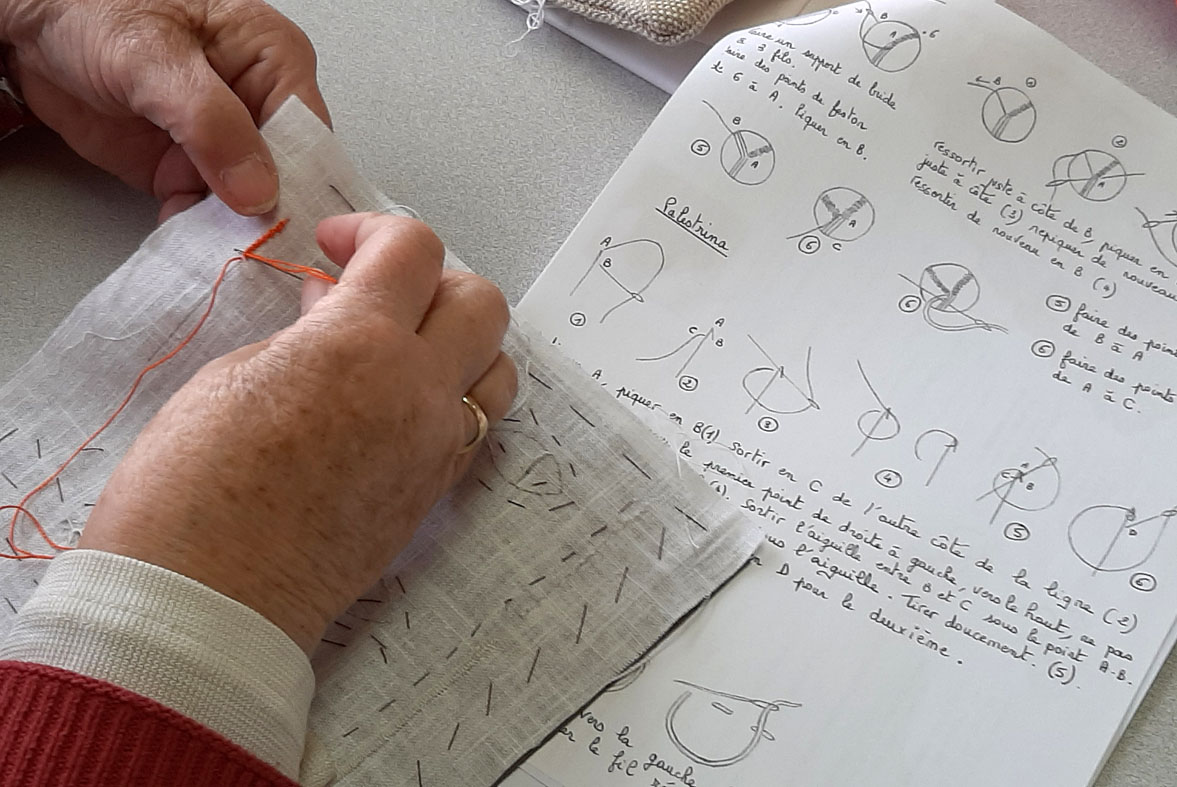 faire un support de bride
à 3 fils.
faire des points de feston
de 6 à A. Piquer en B.
B
A
.6
B
A
⑤
A
C
⑥
← B
①
A
②
ressortir juste à côté de B, piquer en
juste à côté (3), repiquer de nouveau
ressortir de nouveau en B (4)
⑥
⑤ faire des point
de B à A
⑥ faire des points
de A à C.
Palestrina
A
B
①
C A
B
②
③
④
C A B
⑤
B
D
⑥
A, piquer en B(1) sortir en C de l'autre côté de la ligne (2)
le premier point de droite à gauche, vers le haut, ne pas
(4). Sortir l'aiguille entre B et C sous le point A-B.
l'aiguille. Tirer doucement. (5).
D pour le deuxième.
vers la gauche
le fil